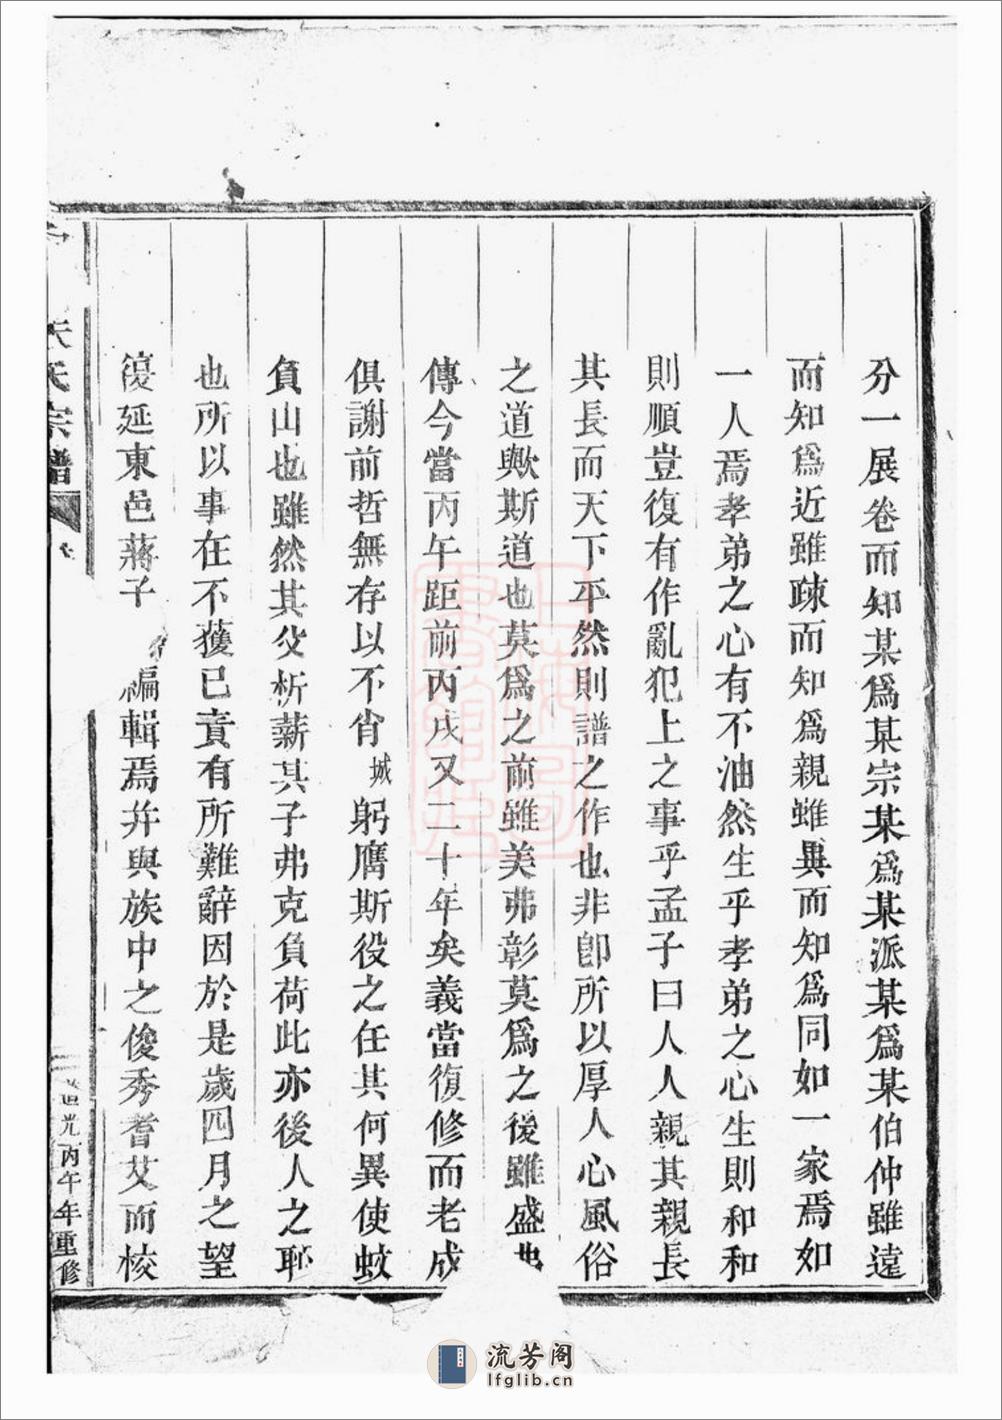 分一展卷而知某爲某宗某爲某派某爲某伯仲雖遠
而知爲近雖疎而知爲親雖異而知爲同如一家焉如
一人焉孝弟之心有不油然生乎孝弟之心生則和和
則順豈復有作亂犯上之事乎孟子曰人人親其親長
其長而天下平然則譜之作也非卽所以厚人心風俗
之道歟斯道也莫爲之前雖美弗彰莫爲之後雖盛弗
傳今當丙午距前丙戌又二十年矣義當復修而老成
俱謝前哲無存以不肖城躬膺斯役之任其何異使蚊
負山也雖然其父析薪其子弗克負荷此亦後人之耻
也所以事在不獲已責有所難辭因於是歲四月之望
復延東邑蔣子編輯焉幷與族中之俊秀耆艾而校
氏宗譜
道光丙午年重修
流芳阁
lfglib.cn